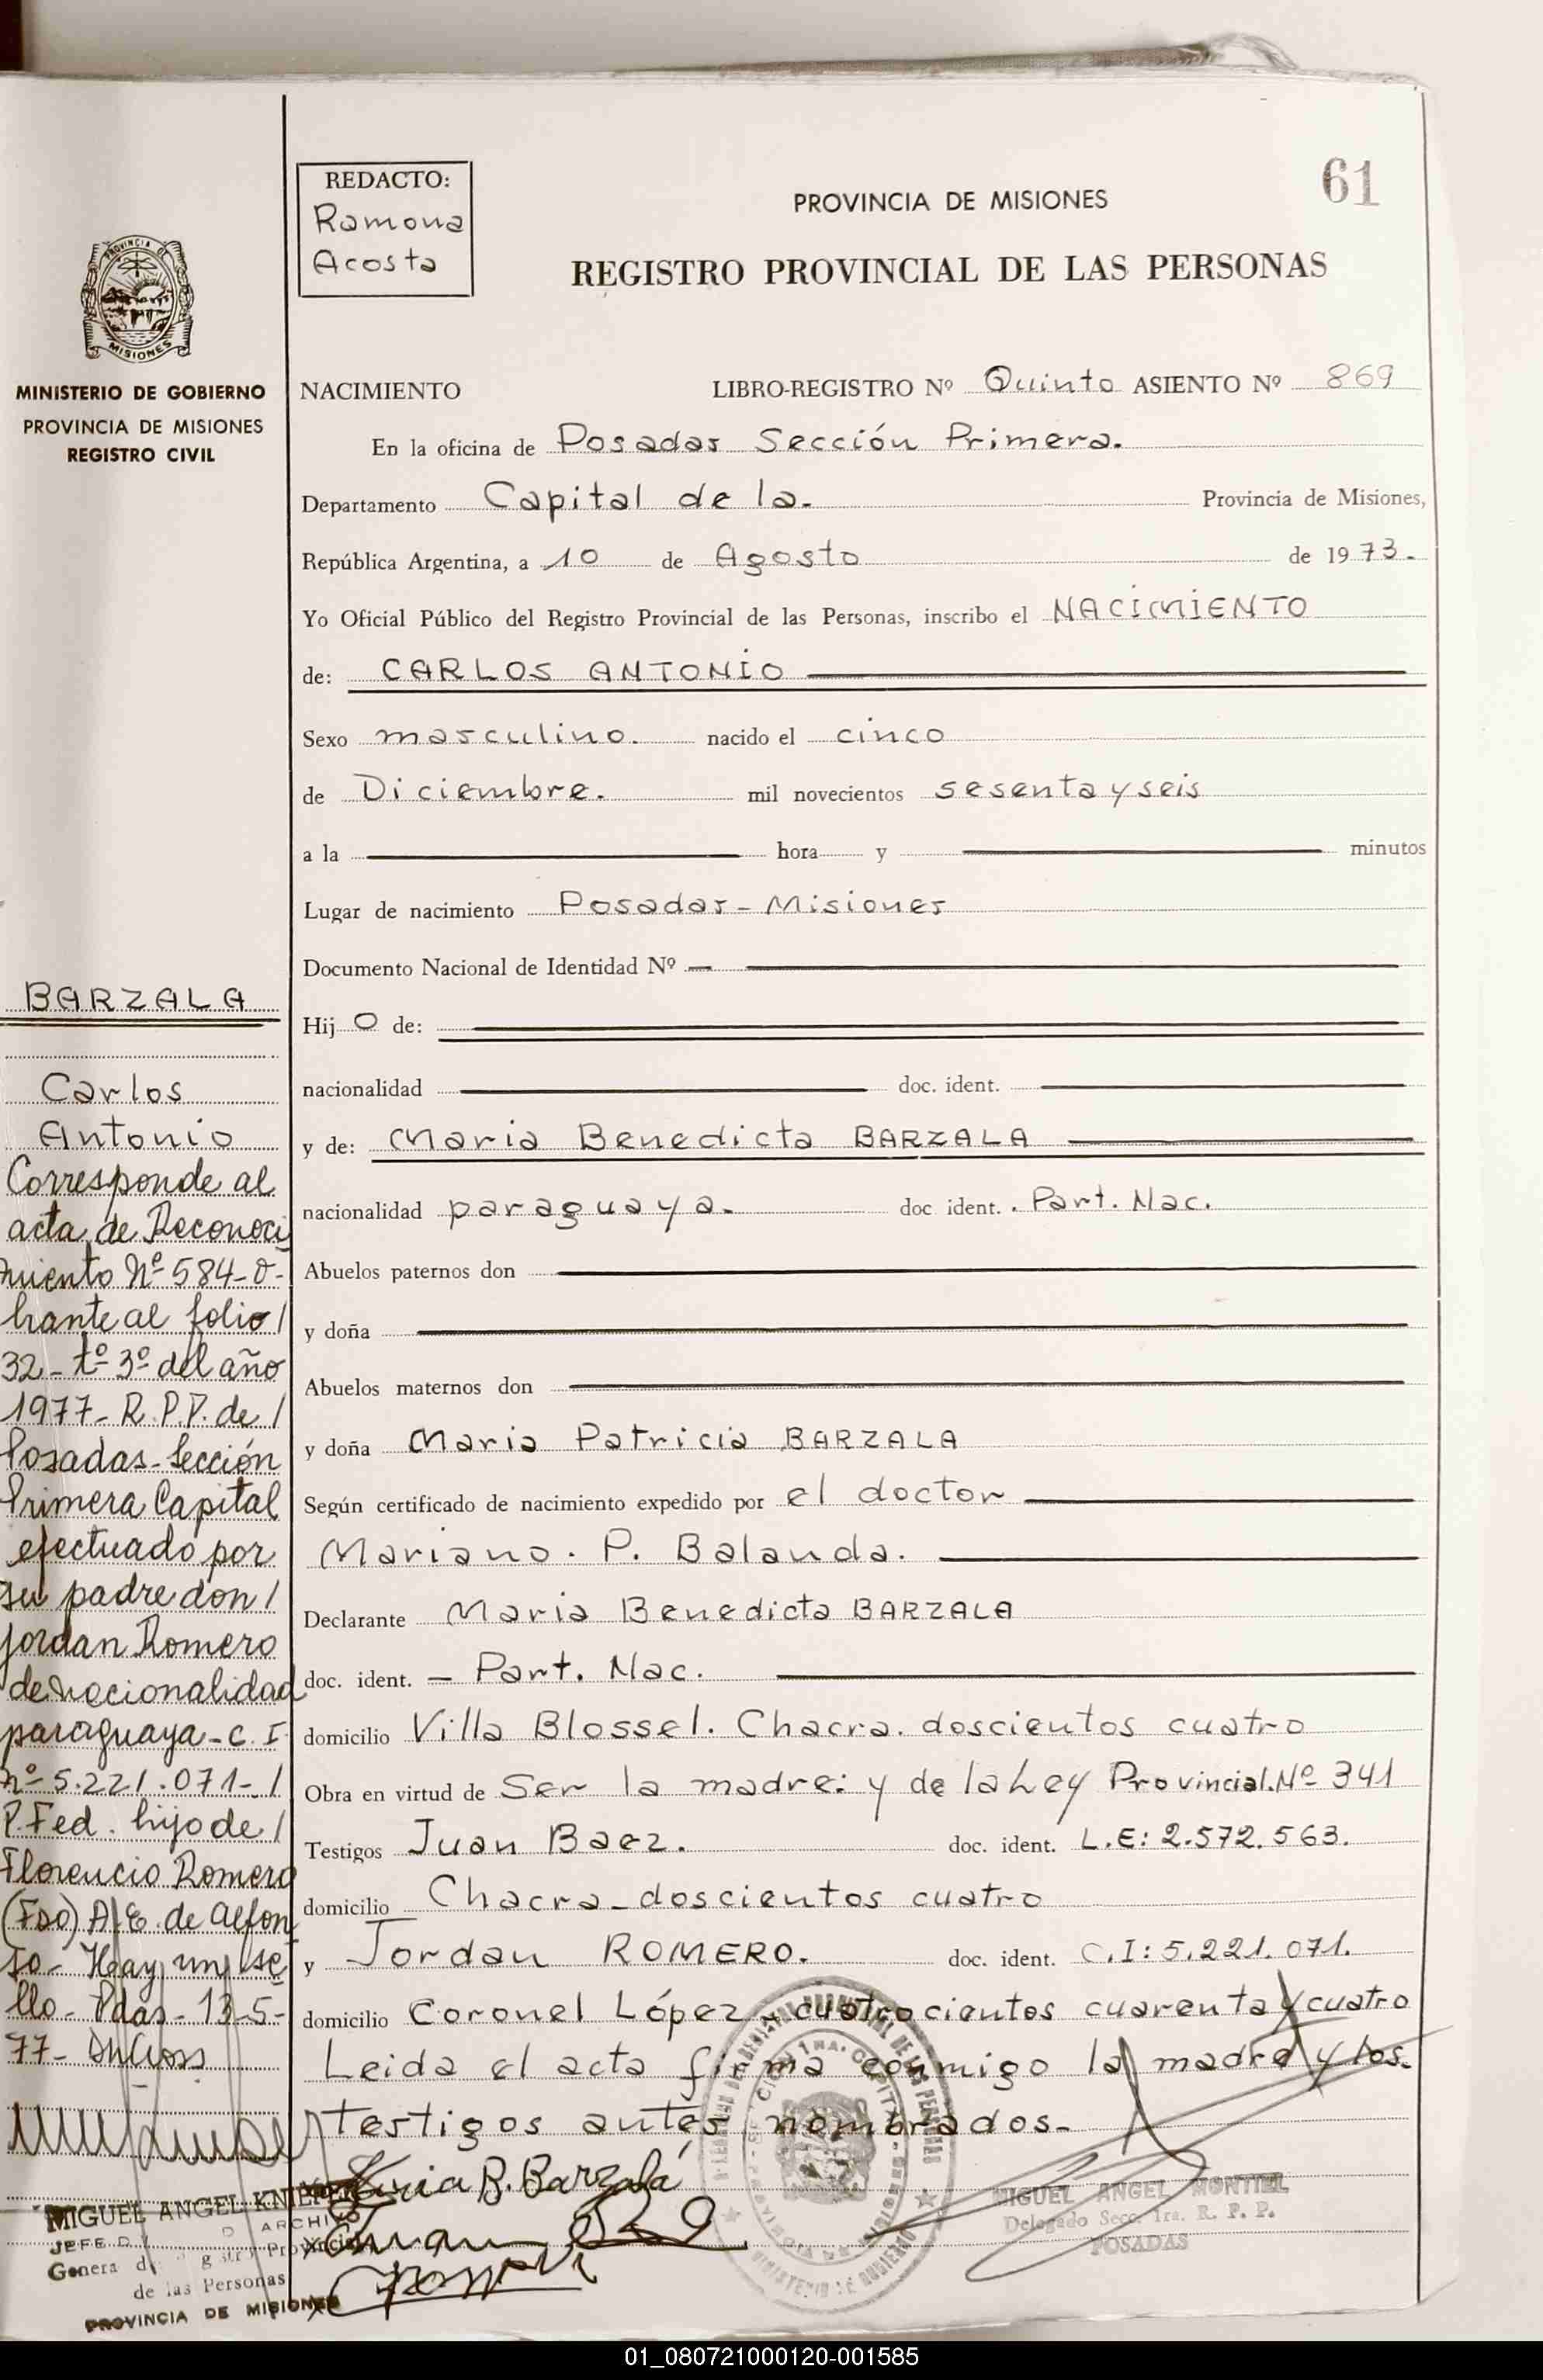 REDACTO:
Ramona
Acosta
61
PROVINCIA DE MISIONES
REGISTRO PROVINCIAL DE LAS PERSONAS
PROVINCIA DE
MISIONES
MINISTERIO DE GOBIERNO
PROVINCIA DE MISIONES
REGISTRO CIVIL
NACIMIENTO LIBRO-REGISTRO Nº Quinto ASIENTO Nº 869
En la oficina de Posadas Sección Primera.
Departamento Capital de la. Provincia de Misiones,
República Argentina, a 10 de Agosto de 1973.
Yo Oficial Público del Registro Provincial de las Personas, inscribo el NACIMIENTO
de: CARLOS ANTONIO
Sexo masculino. nacido el cinco
de Diciembre. mil novecientos sesenta y seis
a la hora y minutos
Lugar de nacimiento Posadas-Misiones
Documento Nacional de Identidad Nº
Hijo de:
nacionalidad doc. ident.
y de: Maria Benedicta BARZALA
nacionalidad paraguaya. doc ident. Part. Nac.
Abuelos paternos don
y doña
Abuelos maternos don
y doña Maria Patricia BARZALA
Según certificado de nacimiento expedido por el doctor
Mariano. P. Balanda.
Declarante Maria Benedicta BARZALA
doc. ident. - Part. Nac.
domicilio Villa Blossel. Chacra. doscientos cuatro
Obra en virtud de Ser la madre: y de la Ley Provincial.Nº 341
Testigos Juan Baez. doc. ident. L.E: 2.572.563.
domicilio Chacra-doscientos cuatro
y Jordan ROMERO. doc. ident. C.I: 5.221.071.
domicilio Coronel López - cuatrocientos cuarenta y cuatro
Leida el acta firma conmigo la madre y los.
testigos antes nombrados-
BARZALA
Carlos
Antonio
Corresponde al
acta de Reconoci
miento Nº 584-O-
brante al folio/
32- tº 3º del año
1977- R.P.P. de/
Posadas-Sección
Primera Capital
efectuado por
su padre don/
Jordan Romero
de nacionalidad
paraguaya-C.I
nº 5.221.071-/
P.Fed. hijo de/
Florencio Romero
(Fdo) A.E. de Alfon
so- Hay un se
llo- Pdas- 13-5-
77-
Maria B. Barzala
Juan
MIGUEL ANGEL
JEFE D ARCHIVO
Genera Provincial
de las Personas
PROVINCIA DE MISIONES
MIGUEL ANGEL MONTIEL
Delegado Secc. 1ra. R. P. P.
POSADAS
01_080721000120-001585